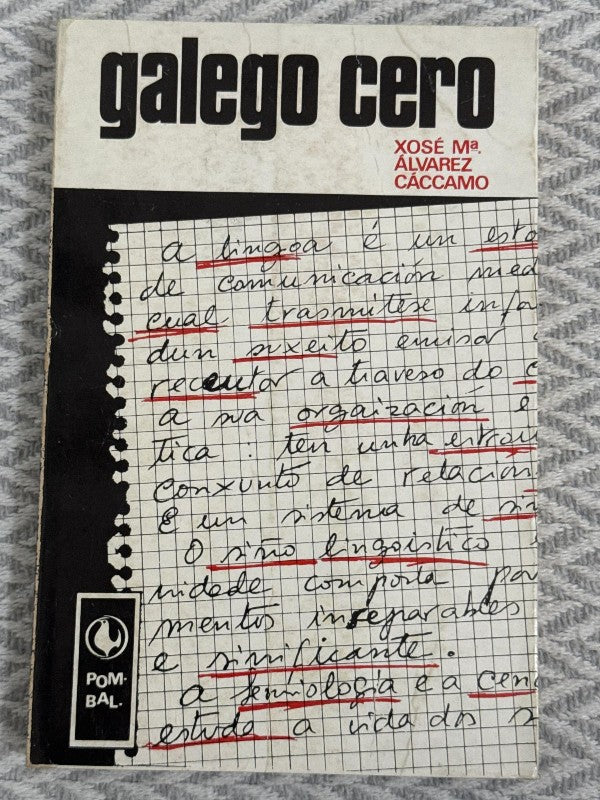 galego cero
XOSÉ Mª.
ÁLVAREZ
CÁCCAMO
a lingoa é un esto
de comunicación med
cual trasmitese info
dun suxeito emisor
receutor a traveso do c
a sua orgaización e
tica : ten unha estrou
conxunto de relación
E un sistema de si
O siño lingoistico
nidade comporta por
mentos inseparables
e sinificante.
a semiologia e a cenc
estuda a vida dos s
POM-
BAL.